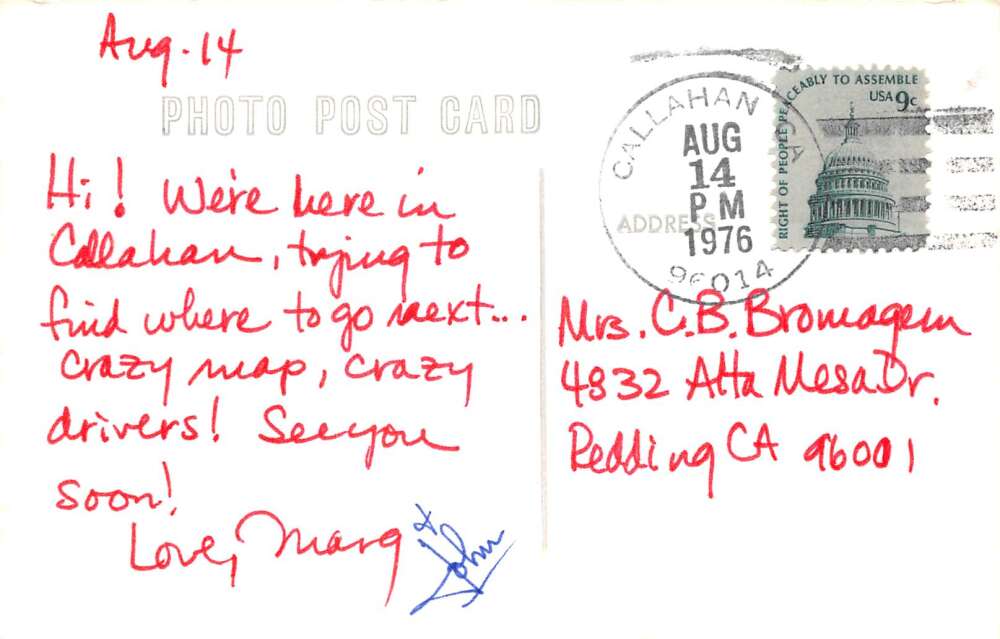 Aug. 14
PHOTO POST CARD
Hi! We're here in
Callahan, trying to
find where to go next...
crazy map, crazy
drivers! See you
soon!
Love, Marg
& John
CALLAHAN CA
AUG
14
PM
1976
96014
RIGHT OF PEOPLE PEACEABLY TO ASSEMBLE
USA 9c
ADDRESS
Mrs. C.B. Bromagem
4832 Alta Mesa Dr.
Redding CA 96001